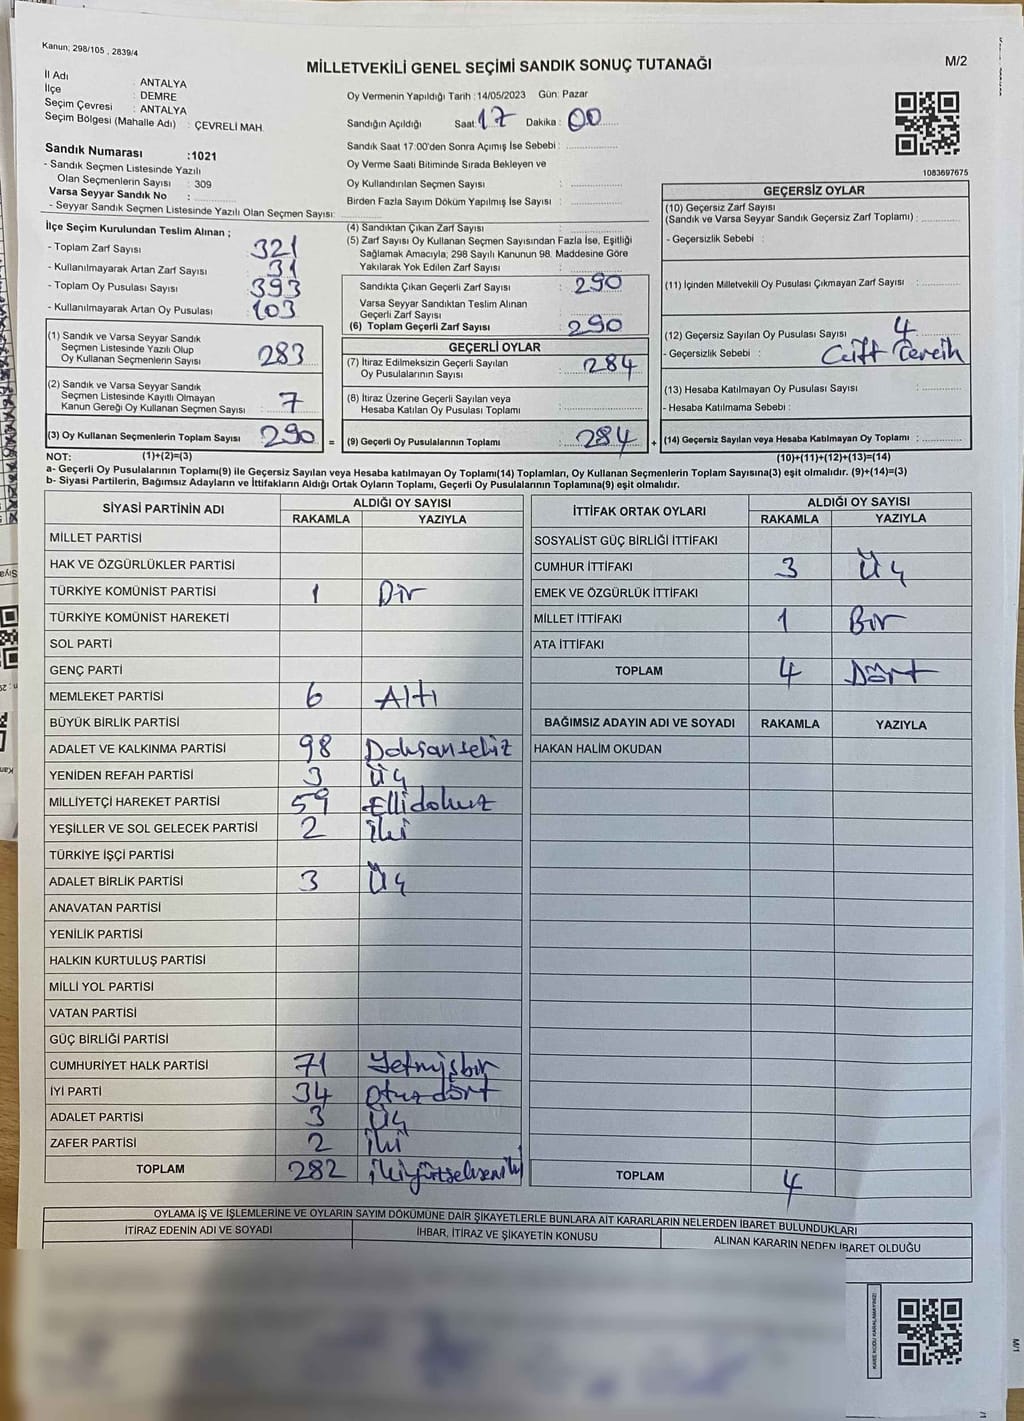 Kanun; 298/105 , 2839/4
MİLLETVEKİLİ GENEL SEÇİMİ SANDIK SONUÇ TUTANAĞI
M/2
İl Adı : ANTALYA
İlçe : DEMRE
Seçim Çevresi : ANTALYA
Seçim Bölgesi (Mahalle Adı) : ÇEVRELİ MAH.
Sandık Numarası :1021
- Sandık Seçmen Listesinde Yazılı
Olan Seçmenlerin Sayısı : 309
Varsa Seyyar Sandık No :
- Seyyar Sandık Seçmen Listesinde Yazılı Olan Seçmen Sayısı:
Oy Vermenin Yapıldığı Tarih :14/05/2023 Gün: Pazar
Sandığın Açıldığı Saat: 17 Dakika : 00
Sandık Saat 17:00'den Sonra Açımış İse Sebebi :
Oy Verme Saati Bitiminde Sırada Bekleyen ve
Oy Kullandırılan Seçmen Sayısı :
Birden Fazla Sayım Döküm Yapılmış İse Sayısı :
1083697675
İlçe Seçim Kurulundan Teslim Alınan ;
- Toplam Zarf Sayısı 321
- Kullanılmayarak Artan Zarf Sayısı 31
- Toplam Oy Pusulası Sayısı 393
- Kullanılmayarak Artan Oy Pusulası 103
(1) Sandık ve Varsa Seyyar Sandık
Seçmen Listesinde Yazılı Olup
Oy Kullanan Seçmenlerin Sayısı : 283
(2) Sandık ve Varsa Seyyar Sandık
Seçmen Listesinde Kayıtlı Olmayan
Kanun Gereği Oy Kullanan Seçmen Sayısı : 7
(3) Oy Kullanan Seçmenlerin Toplam Sayısı : 290 =
(4) Sandıktan Çıkan Zarf Sayısı :
(5) Zarf Sayısı Oy Kullanan Seçmen Sayısından Fazla İse, Eşitliği
Sağlamak Amacıyla; 298 Sayılı Kanunun 98. Maddesine Göre
Yakılarak Yok Edilen Zarf Sayısı :
Sandıkta Çıkan Geçerli Zarf Sayısı : 290
Varsa Seyyar Sandıktan Teslim Alınan
Geçerli Zarf Sayısı :
(6) Toplam Geçerli Zarf Sayısı : 290
GEÇERLİ OYLAR
(7) İtiraz Edilmeksizin Geçerli Sayılan
Oy Pusulalarının Sayısı : 284
(8) İtiraz Üzerine Geçerli Sayılan veya
Hesaba Katılan Oy Pusulası Toplamı :
(9) Geçerli Oy Pusulalarının Toplamı : 284 +
GEÇERSİZ OYLAR
(10) Geçersiz Zarf Sayısı
(Sandık ve Varsa Seyyar Sandık Geçersiz Zarf Toplamı) :
- Geçersizlik Sebebi :
(11) İçinden Milletvekili Oy Pusulası Çıkmayan Zarf Sayısı :
(12) Geçersiz Sayılan Oy Pusulası Sayısı : 4
- Geçersizlik Sebebi : Çift
(13) Hesaba Katılmayan Oy Pusulası Sayısı :
- Hesaba Katılmama Sebebi :
(14) Geçersiz Sayılan veya Hesaba Katılmayan Oy Toplamı :
NOT: (1)+(2)=(3) (10)+(11)+(12)+(13)=(14)
a- Geçerli Oy Pusulalarının Toplamı(9) ile Geçersiz Sayılan veya Hesaba katılmayan Oy Toplamı(14) Toplamları, Oy Kullanan Seçmenlerin Toplam Sayısına(3) eşit olmalıdır. (9)+(14)=(3)
b- Siyasi Partilerin, Bağımsız Adayların ve İttifakların Aldığı Ortak Oyların Toplamı, Geçerli Oy Pusulalarının Toplamına(9) eşit olmalıdır.
SİYASİ PARTİNİN ADI ALDIĞI OY SAYISI
RAKAMLA YAZIYLA
MİLLET PARTİSİ
HAK VE ÖZGÜRLÜKLER PARTİSİ
TÜRKİYE KOMÜNİST PARTİSİ 1 Bir
TÜRKİYE KOMÜNİST HAREKETİ
SOL PARTİ
GENÇ PARTİ
MEMLEKET PARTİSİ 6 Altı
BÜYÜK BİRLİK PARTİSİ
ADALET VE KALKINMA PARTİSİ 98 Doksansekiz
YENİDEN REFAH PARTİSİ 3 Üç
MİLLİYETÇİ HAREKET PARTİSİ 59 Ellidokuz
YEŞİLLER VE SOL GELECEK PARTİSİ 2 İki
TÜRKİYE İŞÇİ PARTİSİ
ADALET BİRLİK PARTİSİ 3 Üç
ANAVATAN PARTİSİ
YENİLİK PARTİSİ
HALKIN KURTULUŞ PARTİSİ
MİLLİ YOL PARTİSİ
VATAN PARTİSİ
GÜÇ BİRLİĞİ PARTİSİ
CUMHURİYET HALK PARTİSİ 71 Yetmişbir
İYİ PARTİ 34 Otuzdört
ADALET PARTİSİ 3 Üç
ZAFER PARTİSİ 2 İki
TOPLAM 282 İkiyüzsekseniki
İTTİFAK ORTAK OYLARI ALDIĞI OY SAYISI
RAKAMLA YAZIYLA
SOSYALİST GÜÇ BİRLİĞİ İTTİFAKI
CUMHUR İTTİFAKI 3 Üç
EMEK VE ÖZGÜRLÜK İTTİFAKI
MİLLET İTTİFAKI 1 Bir
ATA İTTİFAKI
TOPLAM 4 Dört
BAĞIMSIZ ADAYIN ADI VE SOYADI RAKAMLA YAZIYLA
HAKAN HALİM OKUDAN
TOPLAM 4
OYLAMA İŞ VE İŞLEMLERİNE VE OYLARIN SAYIM DÖKÜMÜNE DAİR ŞİKAYETLERLE BUNLARA AİT KARARLARIN NELERDEN İBARET BULUNDUKLARI
İTİRAZ EDENİN ADI VE SOYADI İHBAR, İTİRAZ VE ŞİKAYETİN KONUSU ALINAN KARARIN NEDEN İBARET OLDUĞU
KARE KODU KARALAMAYINIZ!
M/1